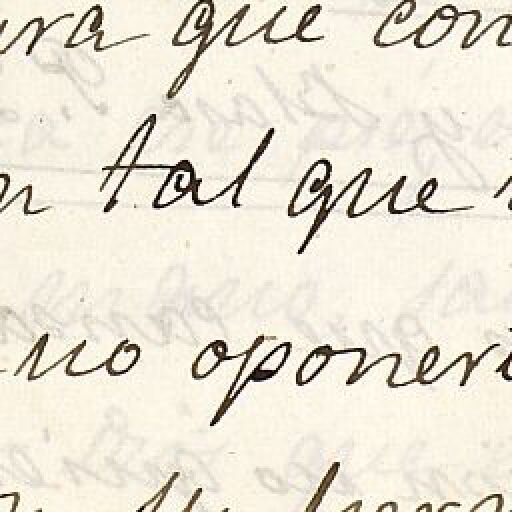 ura que con
n tal que
no oponeri